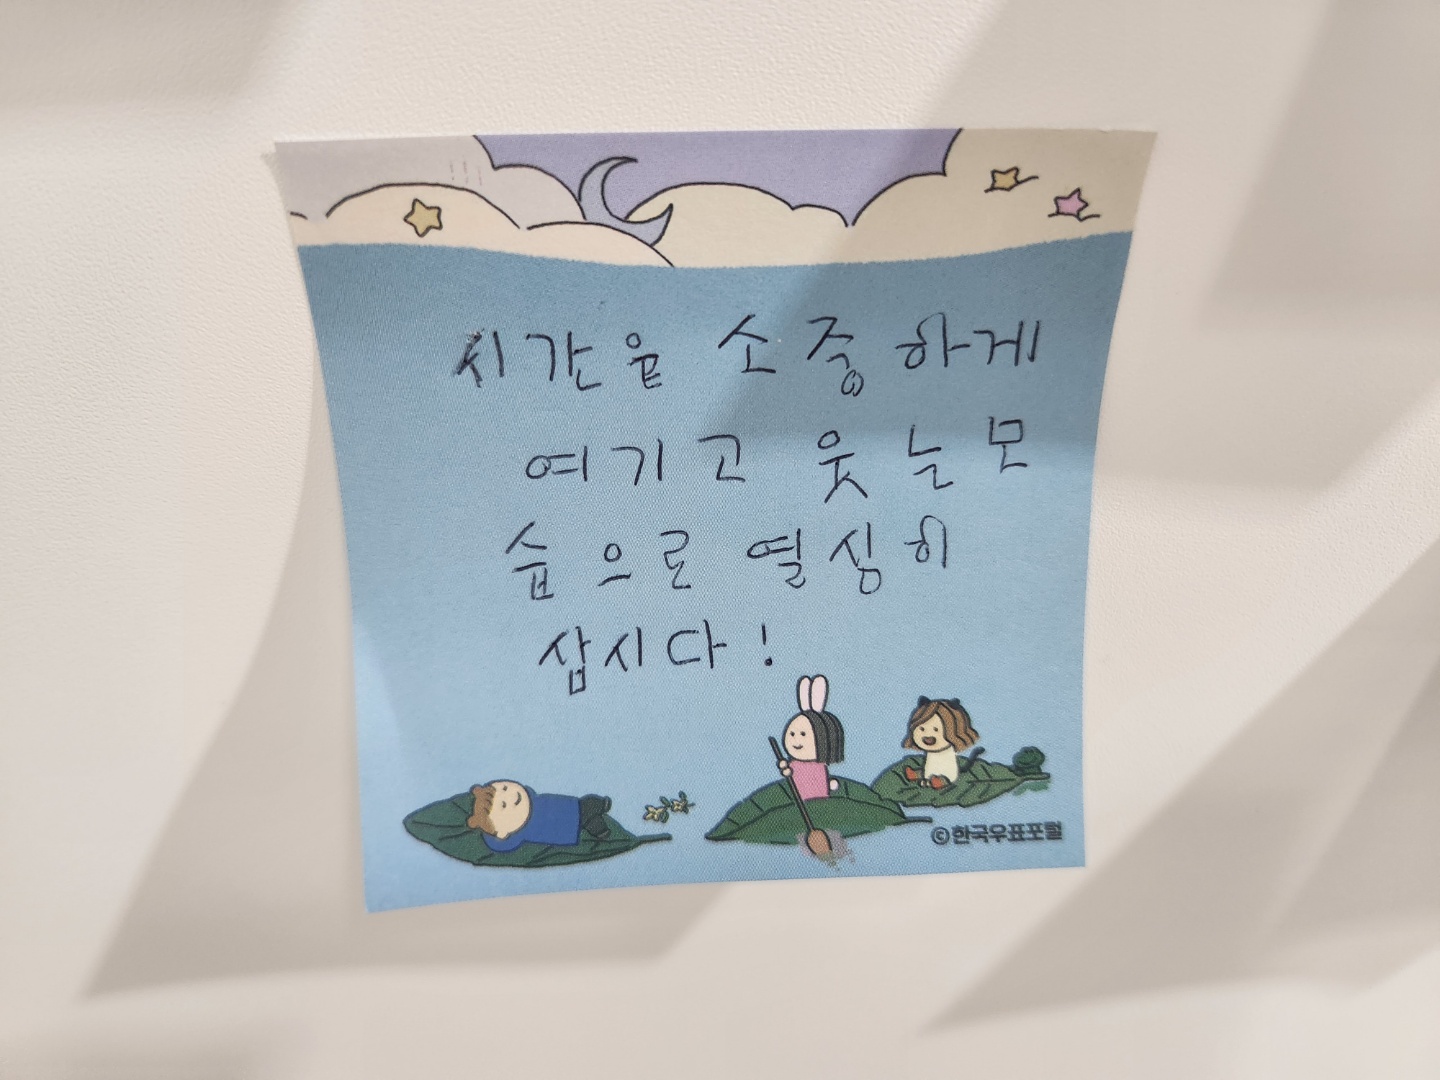 시간을 소중하게
여기고 웃는모
습으로 열심히
삽시다!
©한국우표포럼